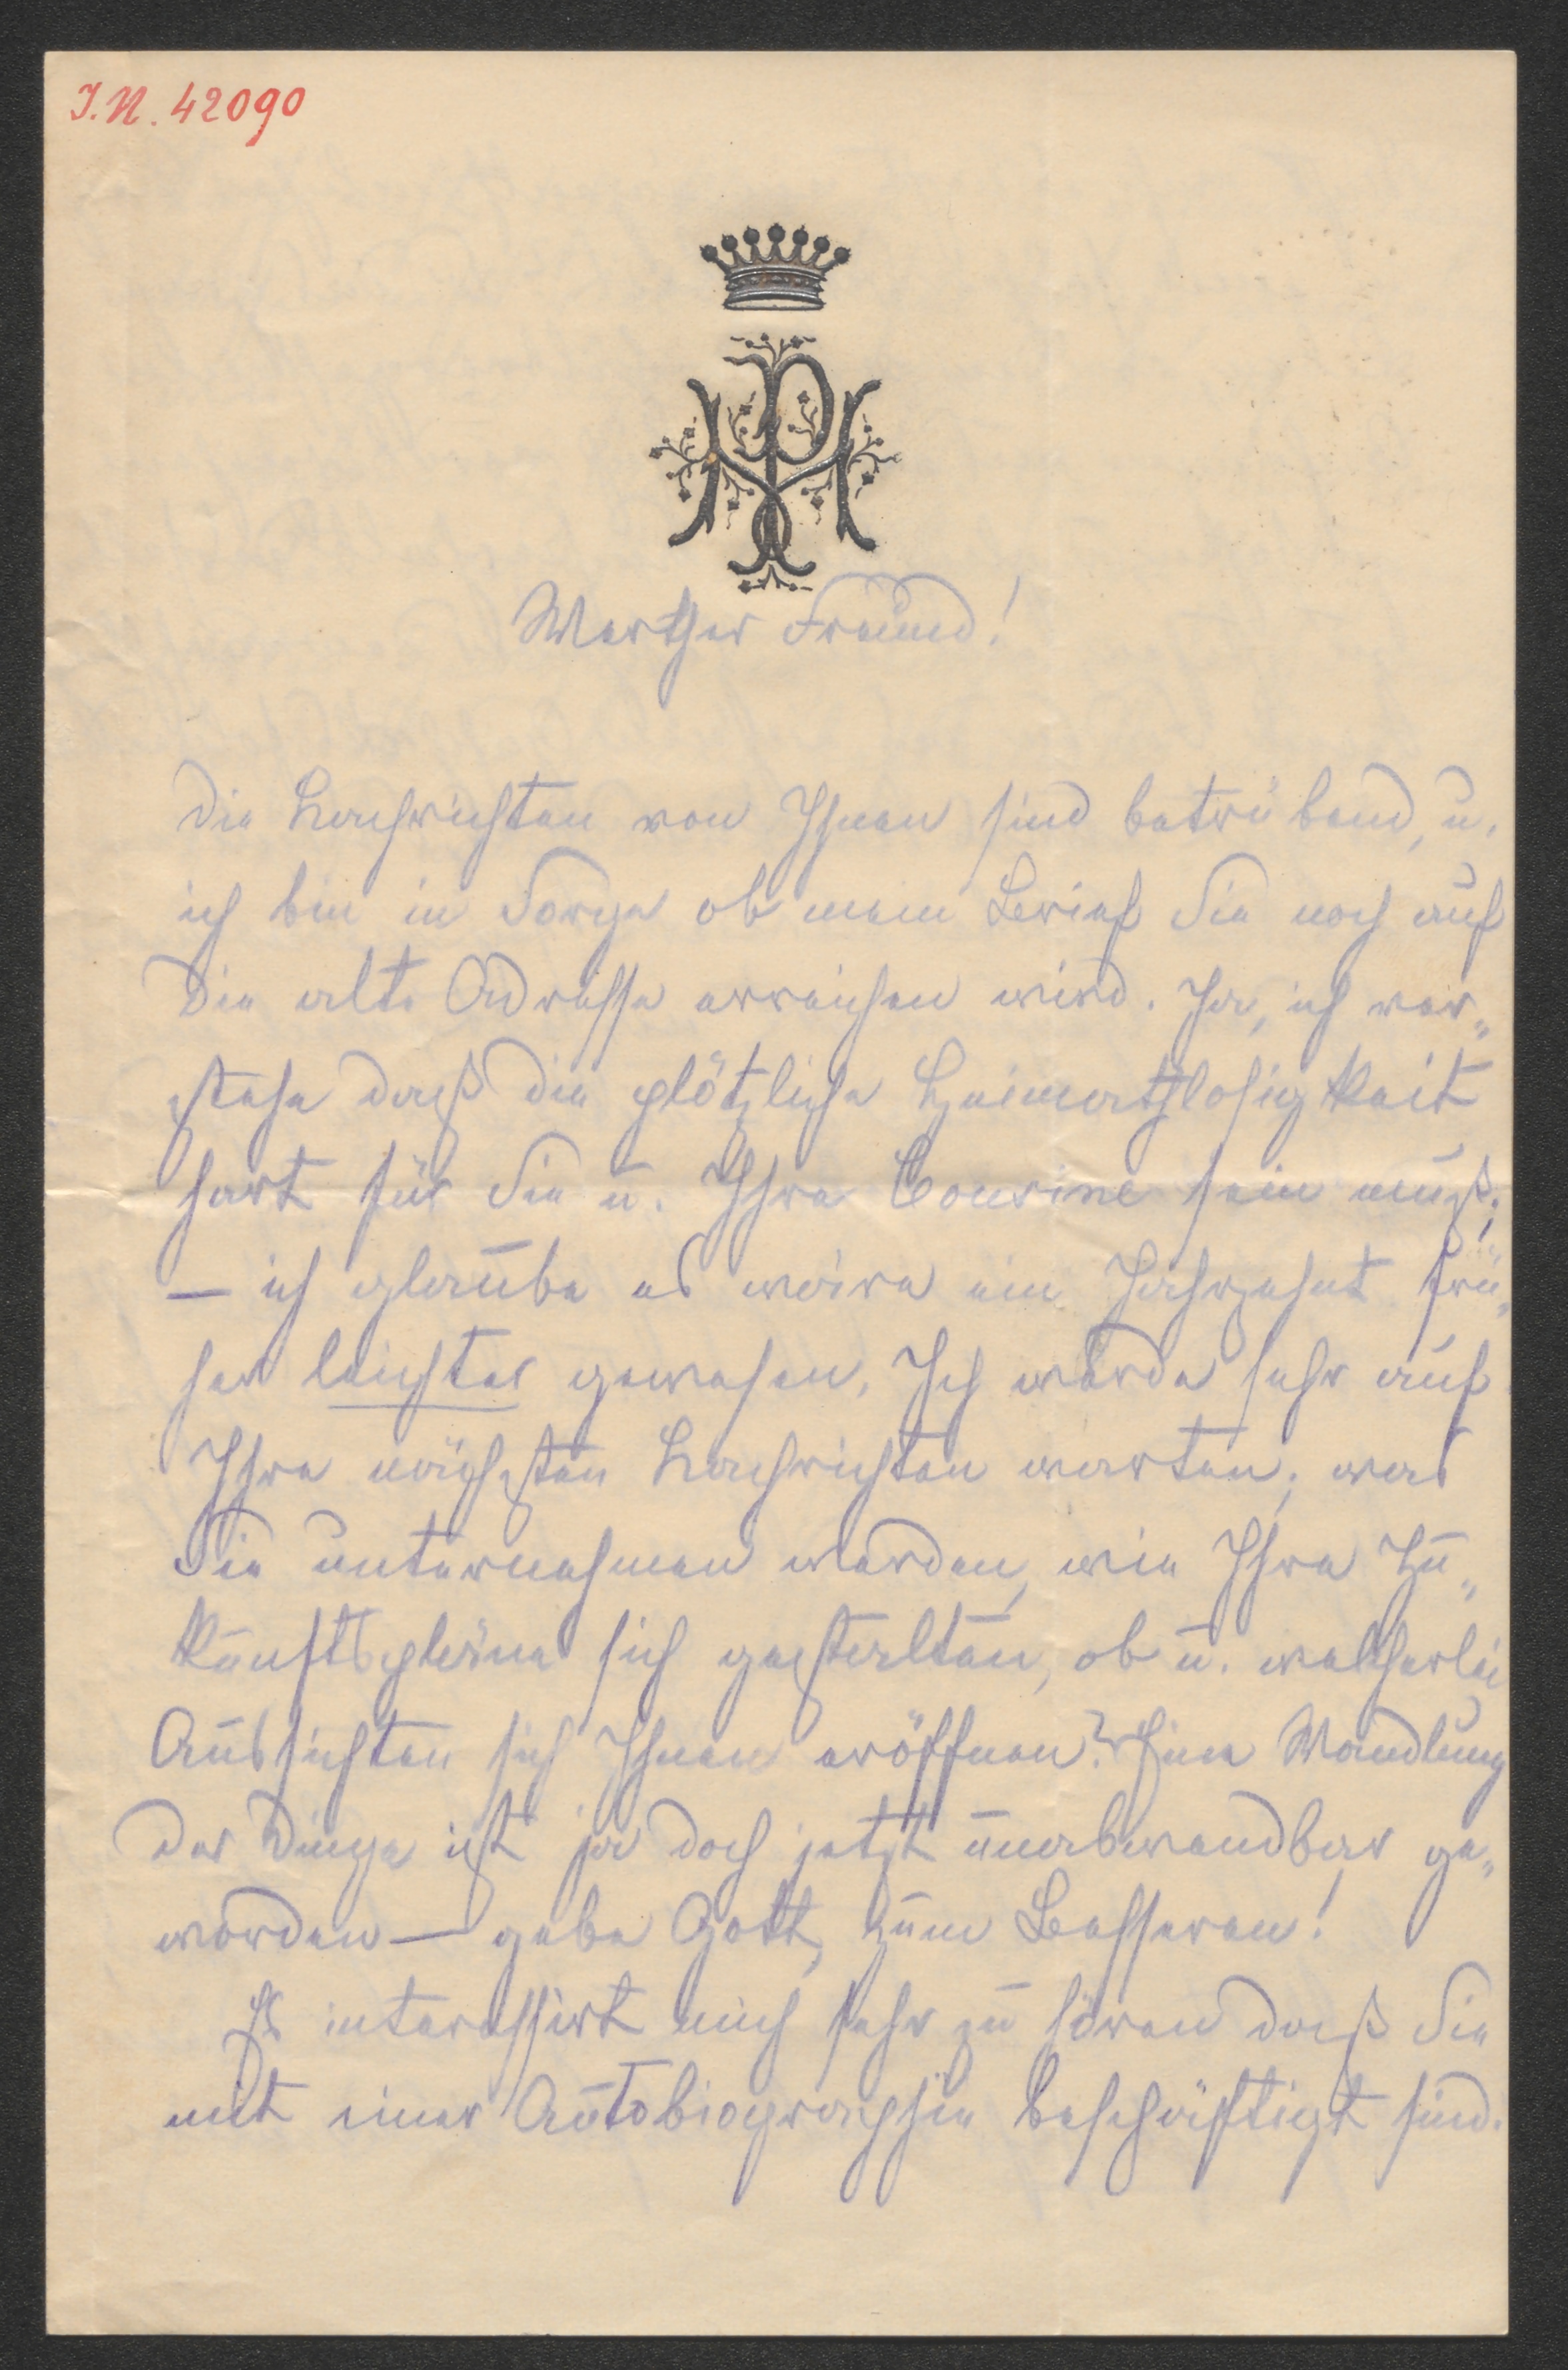 I.N. 42090
Werther Freund!
Die Nachrichten von Ihnen sind betrübend, u.
ich bin in Sorge ob mein Brief Sie noch auf
die alte Adresse erreichen wird. Ja, ich ver„
stehe daß die plötzliche Heimathlosigkeit
hart für Sie u. Ihre Cousine sein muß;
— ich glaube es wäre ein Jahrzehnt frü„
her leichter gewesen. Ich werde sehr auf
Ihre nächsten Nachrichten warten; was
Sie unternehmen werden, wie Ihre Zu„
kunftspläne sich gestalten, ob u. welcherlei
Aussichten sich Ihnen eröffnen? Eine Wandlung
der Dinge ist ja doch jetzt unabwendbar ge„
worden — gebe Gott, zum Besseren!
Es interessirt mich sehr zu hören daß Sie
mit einer Autobiographie beschäftigt sind.